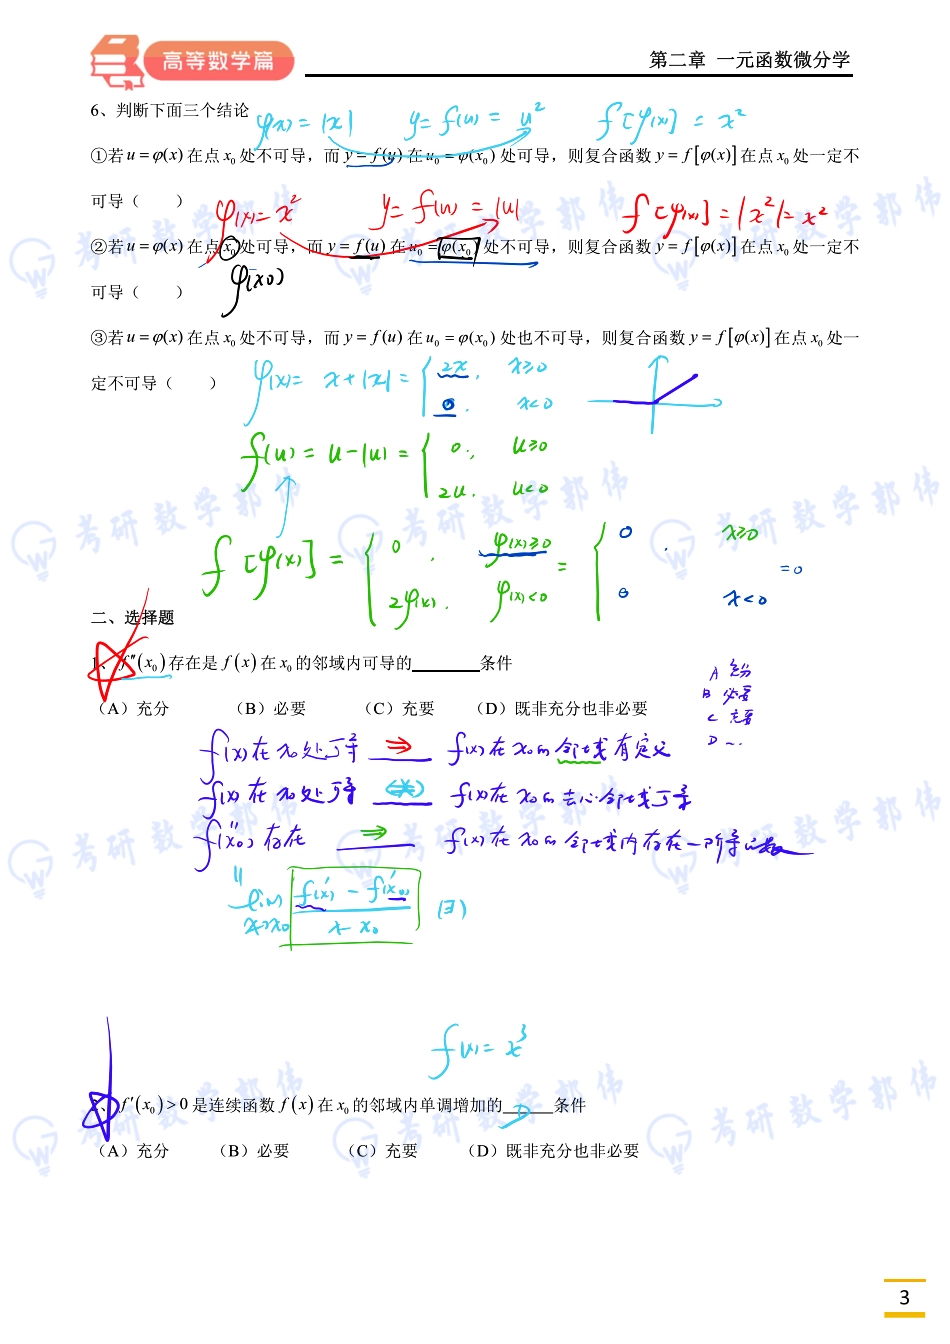 高等数学篇
第二章 一元函数微分学
6、判断下面三个结论
φ(x) = |x| y = f(u) = u² f[φ(x)] = x²
①若 u = φ(x) 在点 x₀ 处不可导，而 y = f(u) 在 u₀ = φ(x₀) 处可导，则复合函数 y = f[φ(x)] 在点 x₀ 处一定不
可导（ ）
φ(x) = x² y = f(u) = |u| f[φ(x)] = |x²| = x²
②若 u = φ(x) 在点 x₀ 处可导，而 y = f(u) 在 u₀ = φ(x₀) 处不可导，则复合函数 y = f[φ(x)] 在点 x₀ 处一定不
φ(x₀)
可导（ ）
③若 u = φ(x) 在点 x₀ 处不可导，而 y = f(u) 在 u₀ = φ(x₀) 处也不可导，则复合函数 y = f[φ(x)] 在点 x₀ 处一
定不可导（ ）
φ(x) = x + |x| = { 2x, x≥0
0, x<0
f(u) = u - |u| = { 0, u≥0
2u, u<0
f[φ(x)] = { 0, φ(x)≥0 = { 0, x≥0
2φ(x), φ(x)<0 0 x<0
=0
二、选择题
1、f″(x₀) 存在是 f(x) 在 x₀ 的邻域内可导的 条件
（A）充分 （B）必要 （C）充要 （D）既非充分也非必要
A 充分
B 必要
C 充要
D ...
f(x)在x₀处可导 ⇒ f(x)在x₀的邻域有定义
f(x)在x₀处可导 f(x)在x₀的去心邻域可导
f″(x₀)存在 ⇒ f(x)在x₀的邻域内存在一阶导函数
lim x→x₀ (f′(x) - f′(x₀))/(x - x₀) (∃)
f(x) = x³
2、f′(x₀) > 0 是连续函数 f(x) 在 x₀ 的邻域内单调增加的 D 条件
（A）充分 （B）必要 （C）充要 （D）既非充分也非必要
考研数学郭伟
3